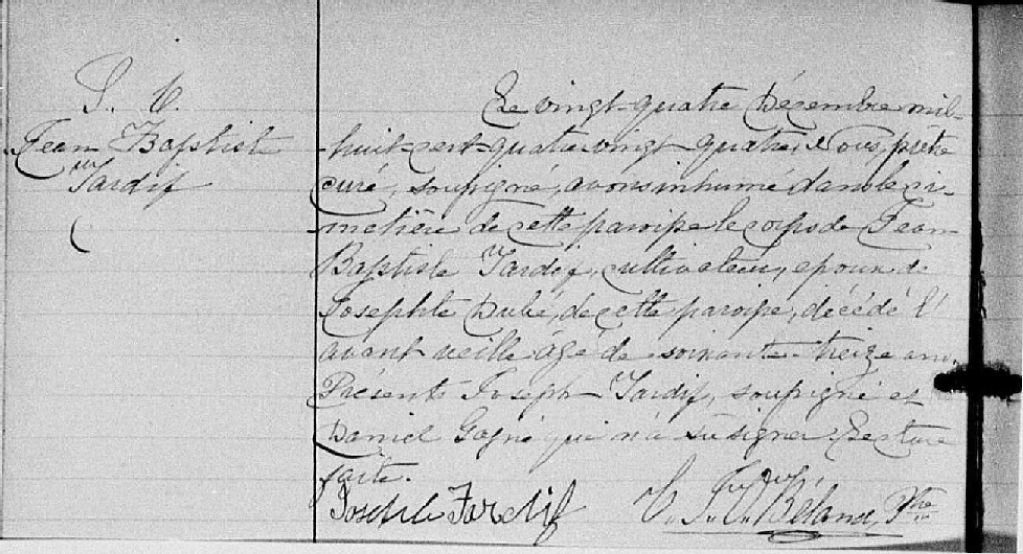 S. 6.
Jean Baptiste
Tardif
Le vingt-quatre Décembre mil-
huit-cent-quatrevingt-quatre, Nous, prêtre
curé, soussigné, avons inhumé dans le ci-
metière de cette paroisse le corps de Jean
Baptiste Tardif, cultivateur, epoux de
Josephte Dubé, de cette paroisse, décédé l'
avant veille âgé de soixante-treize ans.
Présents Joseph Tardif, soussigné et
Daniel Gagné qui n'a su signer. Lecture
faite.
Joseph Tardif Béland, Ptre